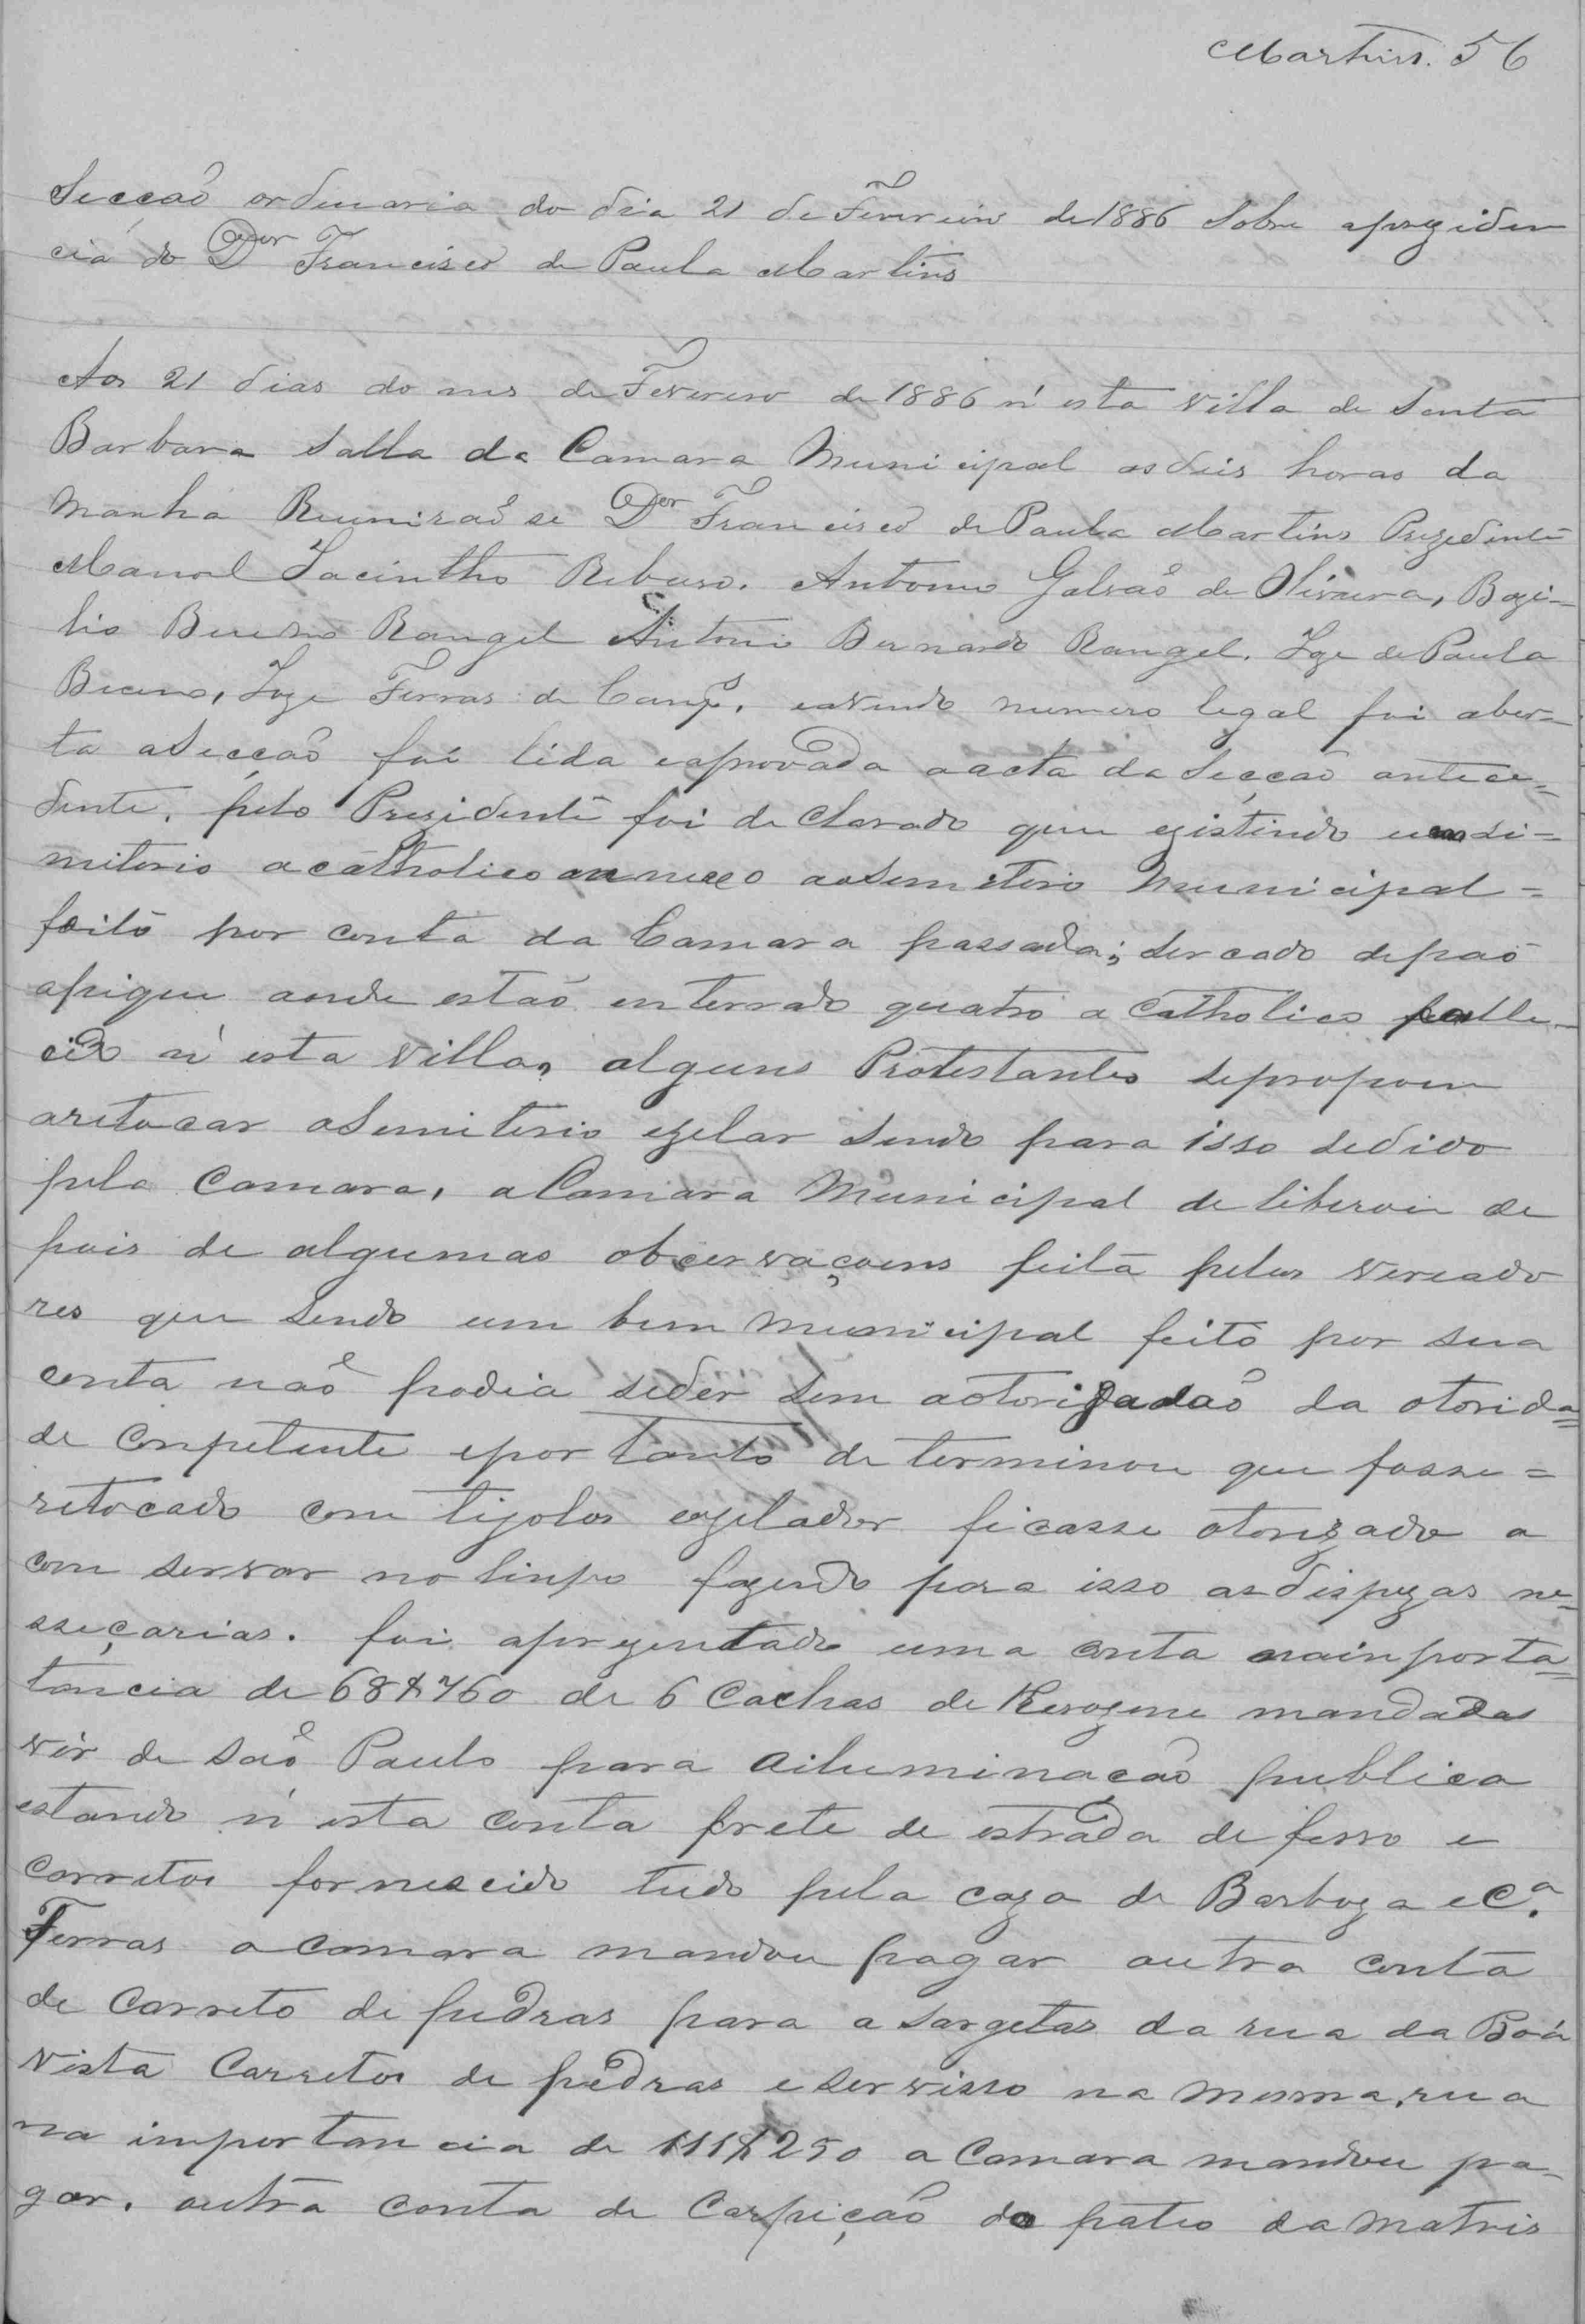 Martins. 56
Secçaõ ordenaria do dia 21 de Fevereiro de 1886 Sobre apreziden
cia do Dor Francisco de Paula Martins
Aos 21 dias do mes de Fevereiro de 1886 n'esta villa de Santa
Barbara Salla da Camara Municipal as deis horas da
manha Reuniraõ se Dor Francisco de Paula Martins Prezidente
Manoel Jacintho Rebeiro. Antonio Galvaõ de Oliveira, Bazi-
lio Bueno Rangel Antonio Bernardo Rangel. Joze de Paula
Bueno, Joze Ferras de Campos, eavendo numero legal foi aber-
ta aSecçaõ foi lida eaprovada aacta da Secçaõ antece=
dente. pelo Prezidente foi de clarado que egistindo um si=
miterio acatholico annexo aoSemiterio Municipal=
feito por conta da Camara passada; Sercado depaõ
apique aonde estaõ enterrado quatro a Catholico falle-
cido n'esta villa, alguns Protestantes sepropoem
aretocar oSemiterio ezelar Sendo para isso sedido
pela Camara, aCamara Municipal deliberou de
pois de algumas observaçoens feita pelos vereado
res que Sendo um bem Municipal feito por sua
conta naõ podia seder sem actorizadaõ da otorida=
de Conpetente epor tanto de terminou que fosse=
retocado com tijolos eozelador ficasse otorizado a
com servar no linpo fazendo para isso as dispezas ne=
sseçarias. foi aprezentado uma conta nainporta=
tancia de 68$760 de 6 Cachas de Kerozene mandadas
vir de Saõ Paulo para ailuminacaõ publica
estando n'esta conta frete de estrada de ferro e
Carretos fornescido tudo pela caza de Barboza eCa.
Ferras a camara mandou pagar outra conta
de Carreto de pedras para a Sargetas da rua da Boa
vista Carretos de pedras e servisso na mesma rua
na importancia de 111$250 a Camara mandou pa-
gar. outra conta de Carpiçaõ do pateo da Matris